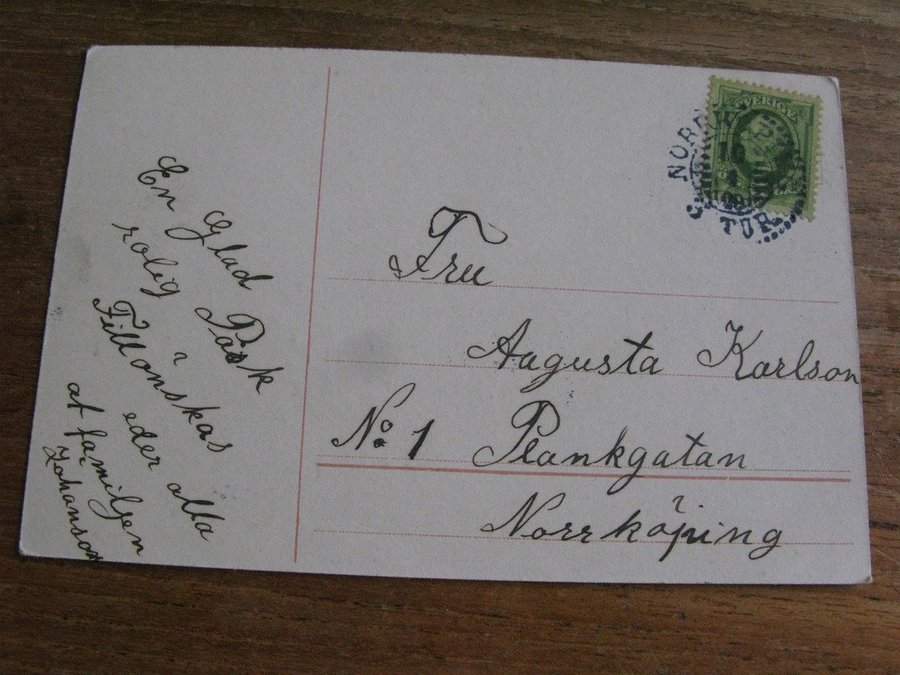 En Glad Påsk
rolig
Tillönskas
eder alla
af familjen
Johanson
Fru
Augusta Karlson
No: 1 Plankgatan
Norrköping
SVERIGE
NORR
TUR